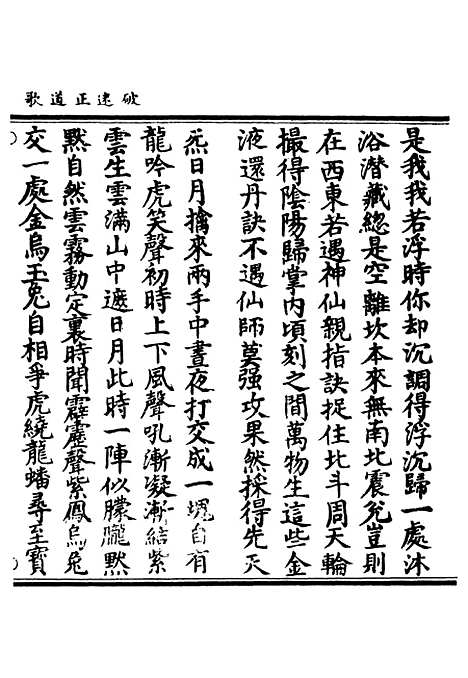 破迷正道歌
是我我若浮時你却沉調得浮沉歸一處沐
浴潛藏緫是空離坎本來無南北震兊豈則
在西東若遇神仙親指訣捉住北斗周天輪
撮得陰陽歸掌內頃刻之間萬物生這些金
液還丹訣不遇仙師莫强攻果然採得先天
炁日月擒來兩手中晝夜打交成一塊自有
龍吟虎笑聲初時上下風聲吼漸凝漸結紫
雲生雲滿山中遮日月此時一陣似朦朧黙
黙自然雲霧動定裏時聞霹靂聲紫鳳烏兔
交一處金烏玉兔自相爭虎繞龍蟠尋至寳